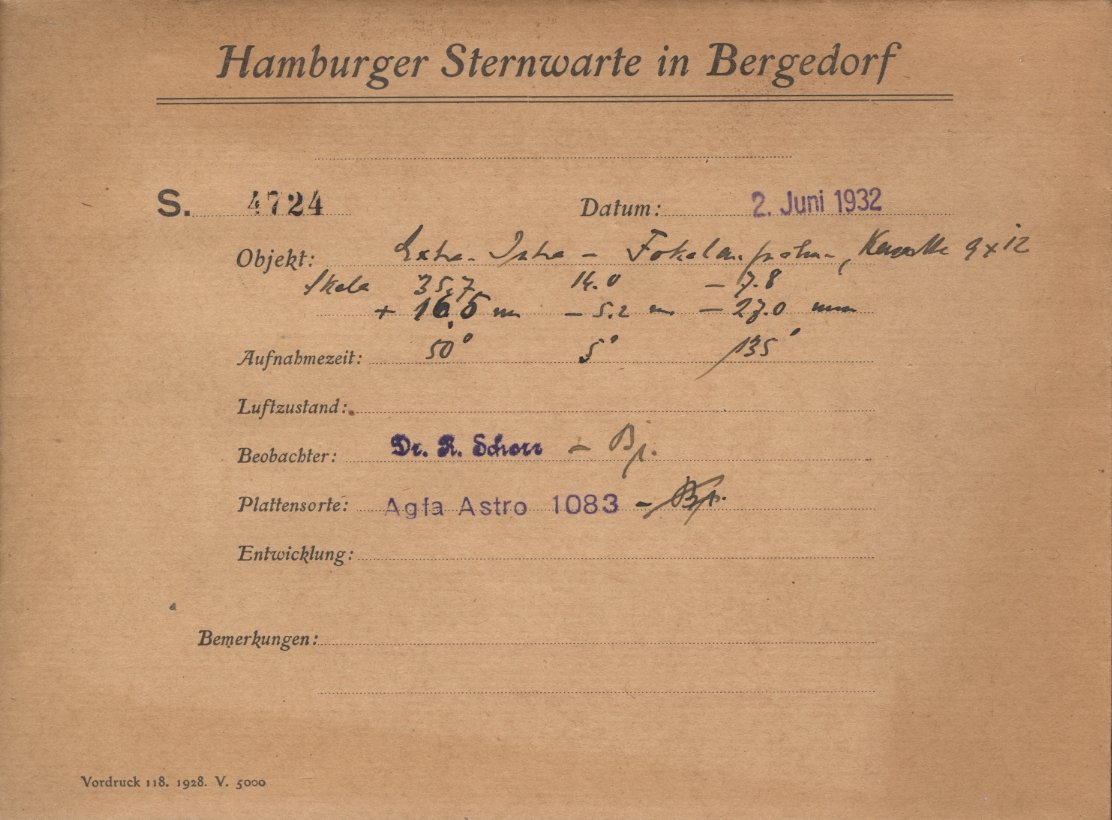 Hamburger Sternwarte in Bergedorf
S. 4724 Datum: 2. Juni 1932
Objekt: Extra- Intra - Fokalaufnahm-, Kassette 9 x 12
Skala 35.7 14.0 - 7.8
+ 16.5 mm - 5.2 mm - 27.0 mm
Aufnahmezeit: 50° 5° 135°
Luftzustand:
Beobachter: Dr. R. Schorr -
Plattensorte: Agfa Astro 1083 -
Entwicklung:
Bemerkungen:
Vordruck 118. 1928. V. 5000